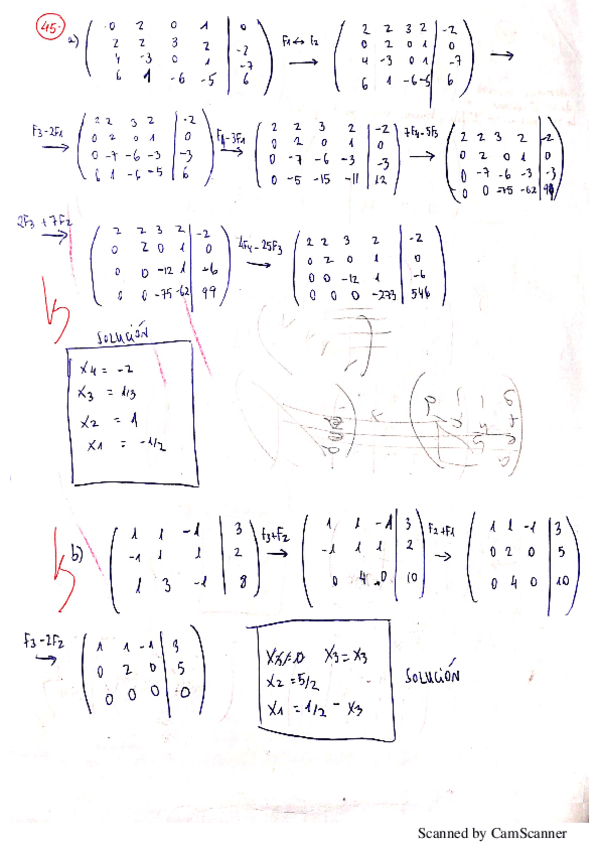 45.
a) ( 0 2 0 1 | 0 ; 2 2 3 2 | -2 ; 4 -3 0 1 | -7 ; 6 1 -6 -5 | 6 ) F1↔F2 → ( 2 2 3 2 | -2 ; 0 2 0 1 | 0 ; 4 -3 0 1 | -7 ; 6 1 -6 -5 | 6 ) →
F3-2F1 → ( 2 2 3 2 | -2 ; 0 2 0 1 | 0 ; 0 -7 -6 -3 | -3 ; 6 1 -6 -5 | 6 ) F4-3F1 → ( 2 2 3 2 | -2 ; 0 2 0 1 | 0 ; 0 -7 -6 -3 | -3 ; 0 -5 -15 -11 | 12 ) 7F4-5F3 → ( 2 2 3 2 | -2 ; 0 2 0 1 | 0 ; 0 -7 -6 -3 | -3 ; 0 0 -75 -62 | )
2F3 + 7F2 → ( 2 2 3 2 | -2 ; 0 2 0 1 | 0 ; 0 0 -12 1 | -6 ; 0 0 -75 -62 | 99 ) 4F4-25F3 → ( 2 2 3 2 | -2 ; 0 2 0 1 | 0 ; 0 0 -12 1 | -6 ; 0 0 0 -273 | 546 )
SOLUCIÓN
X4 = -2
X3 = 1/3
X2 = 1
X1 = -1/2
b) ( 1 1 -1 | 3 ; -1 1 1 | 2 ; 1 3 -1 | 8 ) F3+F2 → ( 1 1 -1 | 3 ; -1 1 1 | 2 ; 0 4 0 | 10 ) F2+F1 → ( 1 1 -1 | 3 ; 0 2 0 | 5 ; 0 4 0 | 10 )
F3-2F2 → ( 1 1 -1 | 3 ; 0 2 0 | 5 ; 0 0 0 | 0 )
X3=X3
X2=5/2
X1=1/2 - X3
SOLUCIÓN
Scanned by CamScanner